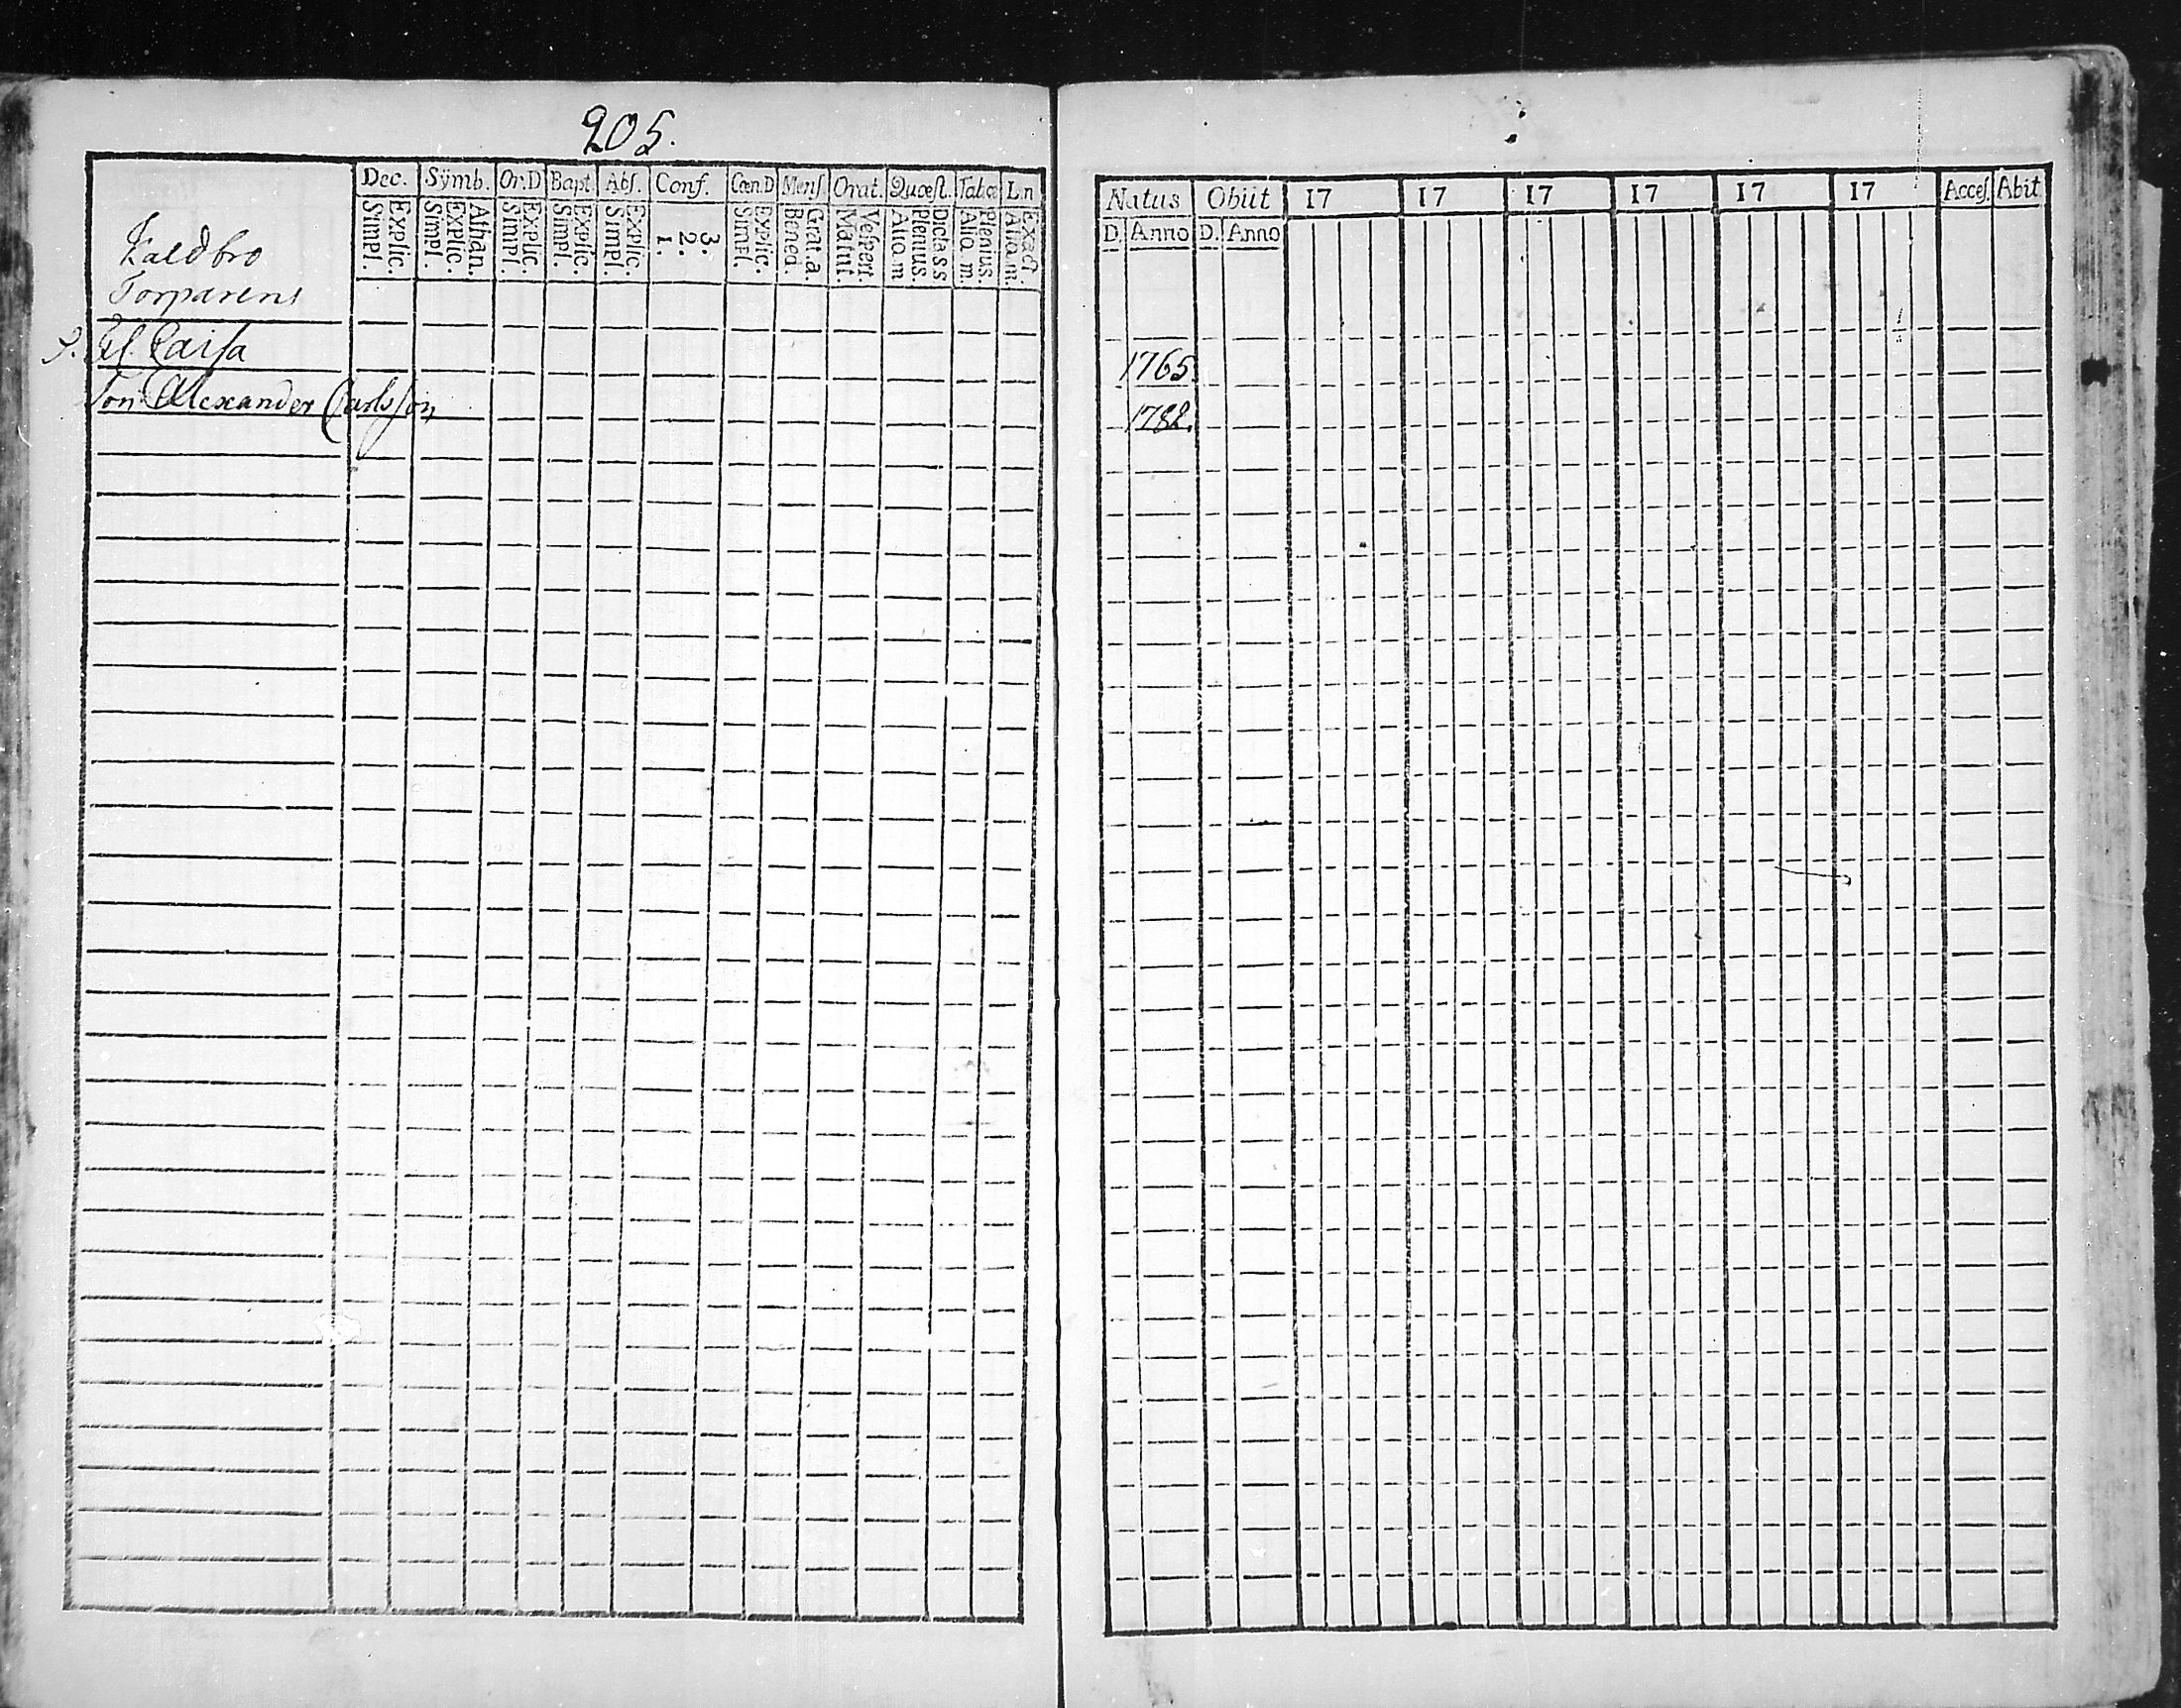 205.
Dec. Sÿmb. Or.D Bapt. Abſ. Conf. Cœn.D Menſ Orat. Quæſt. Tabœ L.n
Simpl. Explic. Simpl. Explic. Athan. Simpl. Explic. Simpl. Explic. Simpl. Explic. 1. 2. 3. Simpl. Explic. Bened. Grat.a. Matut. Veſpert. Alio.m Plenius. Dicta.s.s Alio. m. Plenius. Alio.m. Exact
Kaldbro
Torparens
Caiſa
Son Alexander Carlsſon
Natus Obiit 17 17 17 17 17 17 Acceſ. Abit
D. Anno D. Anno
1765.
1782.